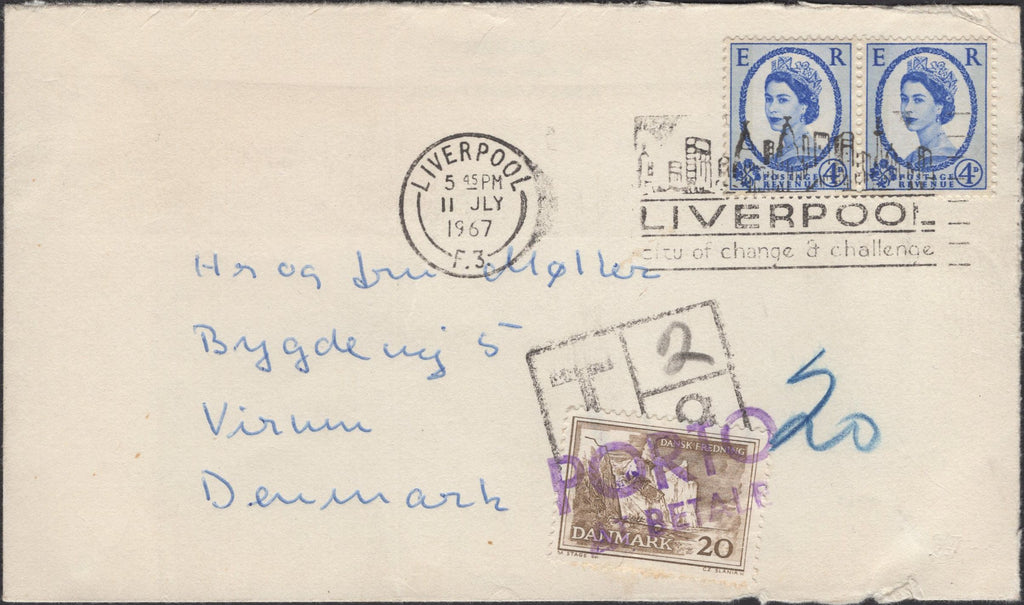 E R E R
POSTAGE REVENUE 4D POSTAGE REVENUE 4D
LIVERPOOL
5 45 PM
11 JLY
1967
F.3.
LIVERPOOL
city of change & challenge
Hr og fru Møller
Bygdevej 5
Virum
Denmark
T 2
9
20
PORTO
BETALT
DANSK FREDNING
DANMARK 20
CZ. SLANIA